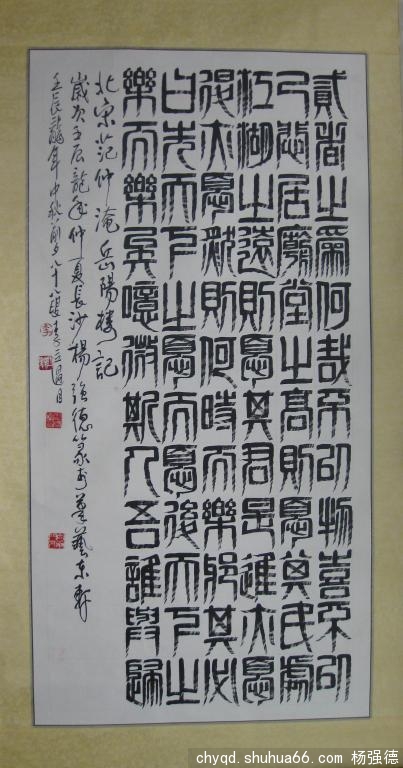 貳者之為何哉不以物喜不以
己悲居廟堂之高則憂其民處
江湖之遠則憂其君是進亦憂
退亦憂然則何時而樂邪其必
曰先天下之憂而憂後天下之
樂而樂與噫微斯人吾誰與歸
北宋范仲淹岳陽樓記
歲次壬辰龍年仲夏長沙楊強德篆於藝東軒
壬辰龍年中秋前夕八十八歲李立過目
chyqd.shuhua66.com 杨强德